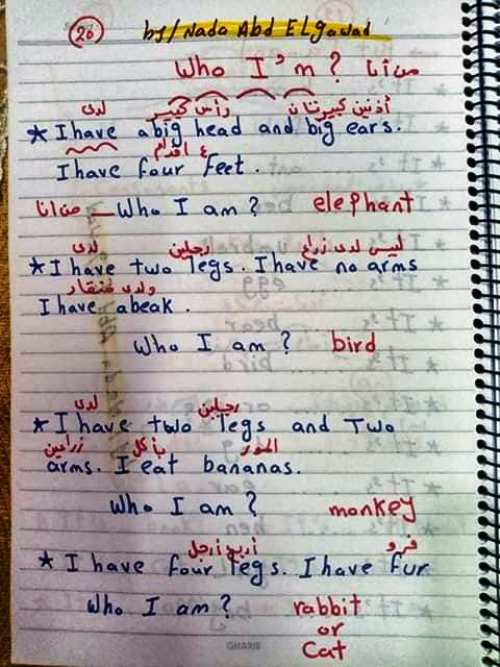 20 by/Nada Abd ELgawad
Who I'm? من أنا
لدى رأس كبير أذنين كبيرتان
* I have a big head and big ears.
٤ اقدام
I have four feet.
من انا Who I am? elephant
لدى رجلين ليس لدى زراع
* I have two legs. I have no arms
ولدى منقار
I have a beak.
Who I am? bird
لدى رجلين
* I have two legs and Two
زراعين يأكل الموز
arms. I eat bananas.
Who I am? monkey
أربع أرجل فرو
* I have four legs. I have fur
Who I am? rabbit
or
Cat
GHARIB